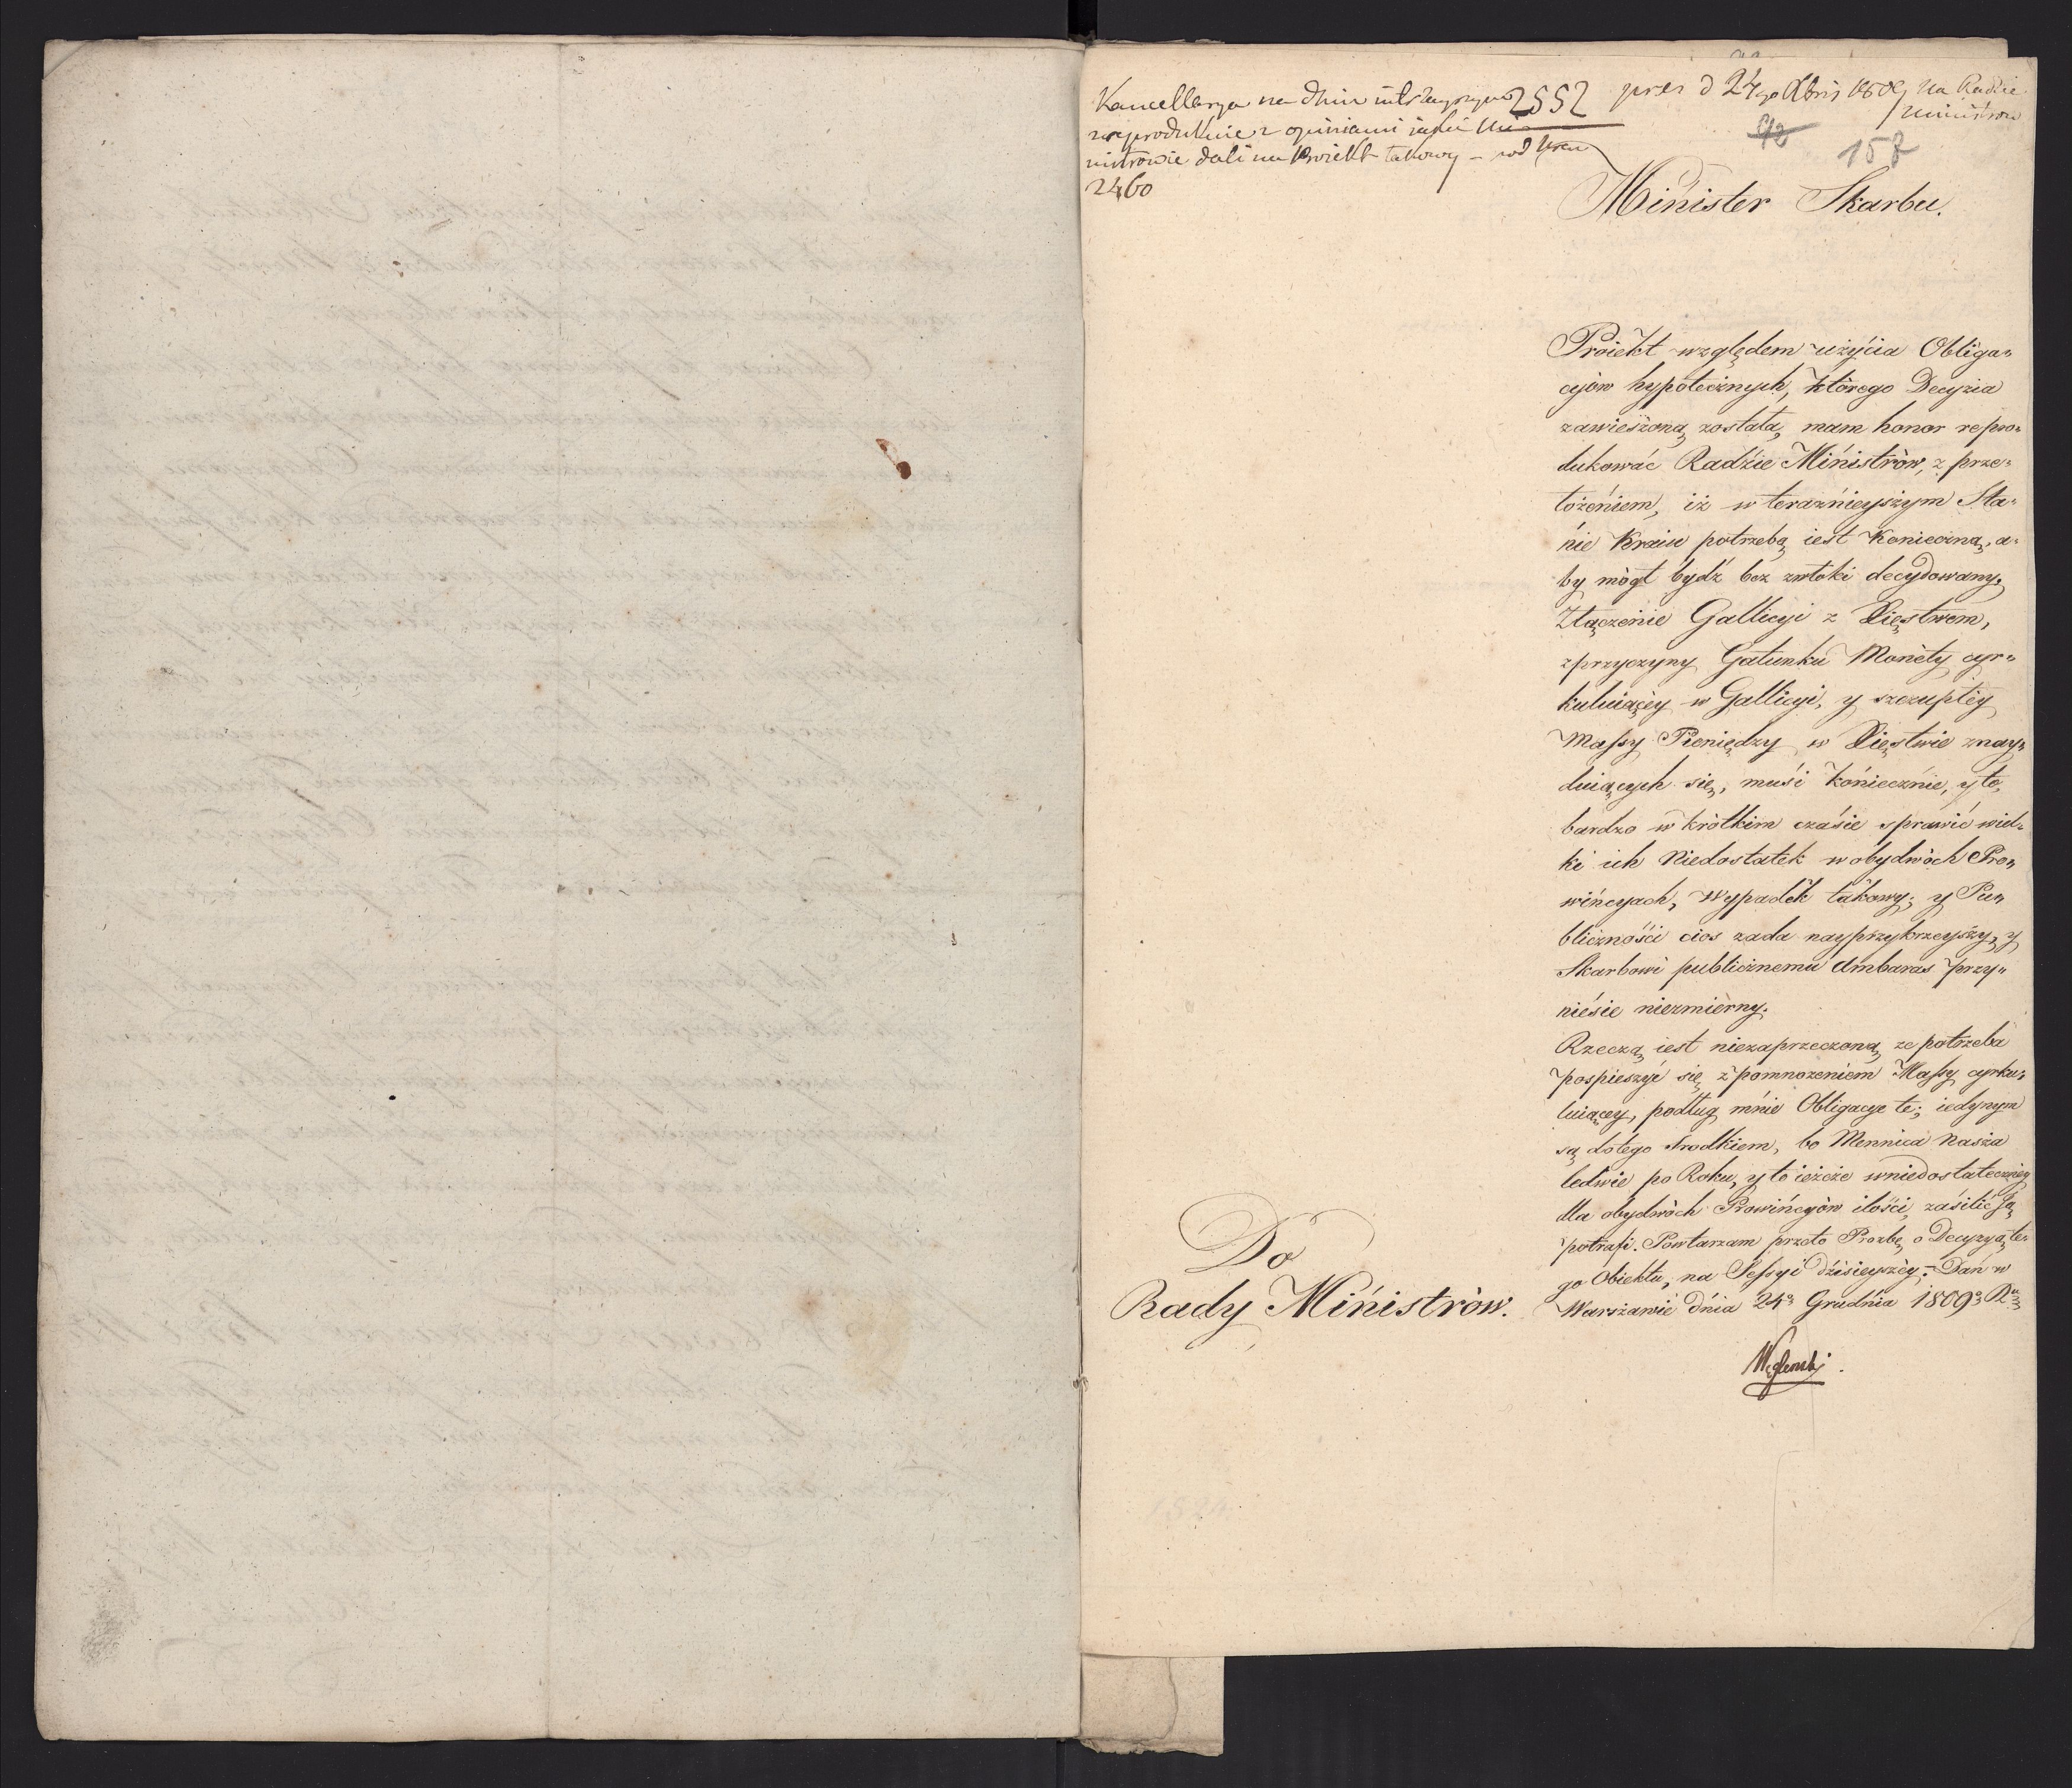 Kancellarya na dniu iutrzeyszym
zreprodukuie z opiniami iakie Mi-
nistrowie dali na Proiekt takowy – pod Nrem
2460
2552
pres d 24go Xbris 1809 na Radzie
Ministrow
92
157
Minister Skarbu.
Proiekt względem użyćia Obliga„
cyiów hypotecznych, którego Decyzia
zawieszoną została, mam honor repro„
dukować Radźie Ministrów, z prze„
łożeniem, iż w teraźnieyszym Sta„
nie Kraiu potrzebą iest Konieczną, a„
by mógł bydź bez zwłoki decydowany,
Złączenie Gallicyi z Xięstwem,
z przyczyny Gatunku Monety cyr„
kuluiącéy w Gallicyi, y szczupłéy
Massy Pieniędzy w Xięstwie znay„
duiących się, muśi koniecznie, y to,
bardzo w krótkim czaśie sprawić wiel„
ki ich Niedostatek w obydwóch Pro„
wincyach, Wypadek takowy, y Pu„
bliczności cios zada nayprzykrzeyszy, y
Skarbowi publicznemu Ambaras przy„
nieśie niezmierny.
Rzeczą iest niezaprzeczoną, ze potrzeba
pospieszyć się z pomnożeniem Massy cyrku„
luiącey, podług mnie Obligacye te, iedynym
są do tego srodkiem, bo Mennica Nasza
ledwie po Roku, y to ieżcze w niedostateczney
dla obydwóch Prowincyów ilośći, zaśilić Ją
potrafi. Powtarzam przeto Prozbę o Decyzyą te„
go Obiektu, na Sessyi dźisieyszéy. Dan w
Warszawie dnia 24o Grudnia 1809o Ru
Węgleński.
Do
Rady Ministrów.